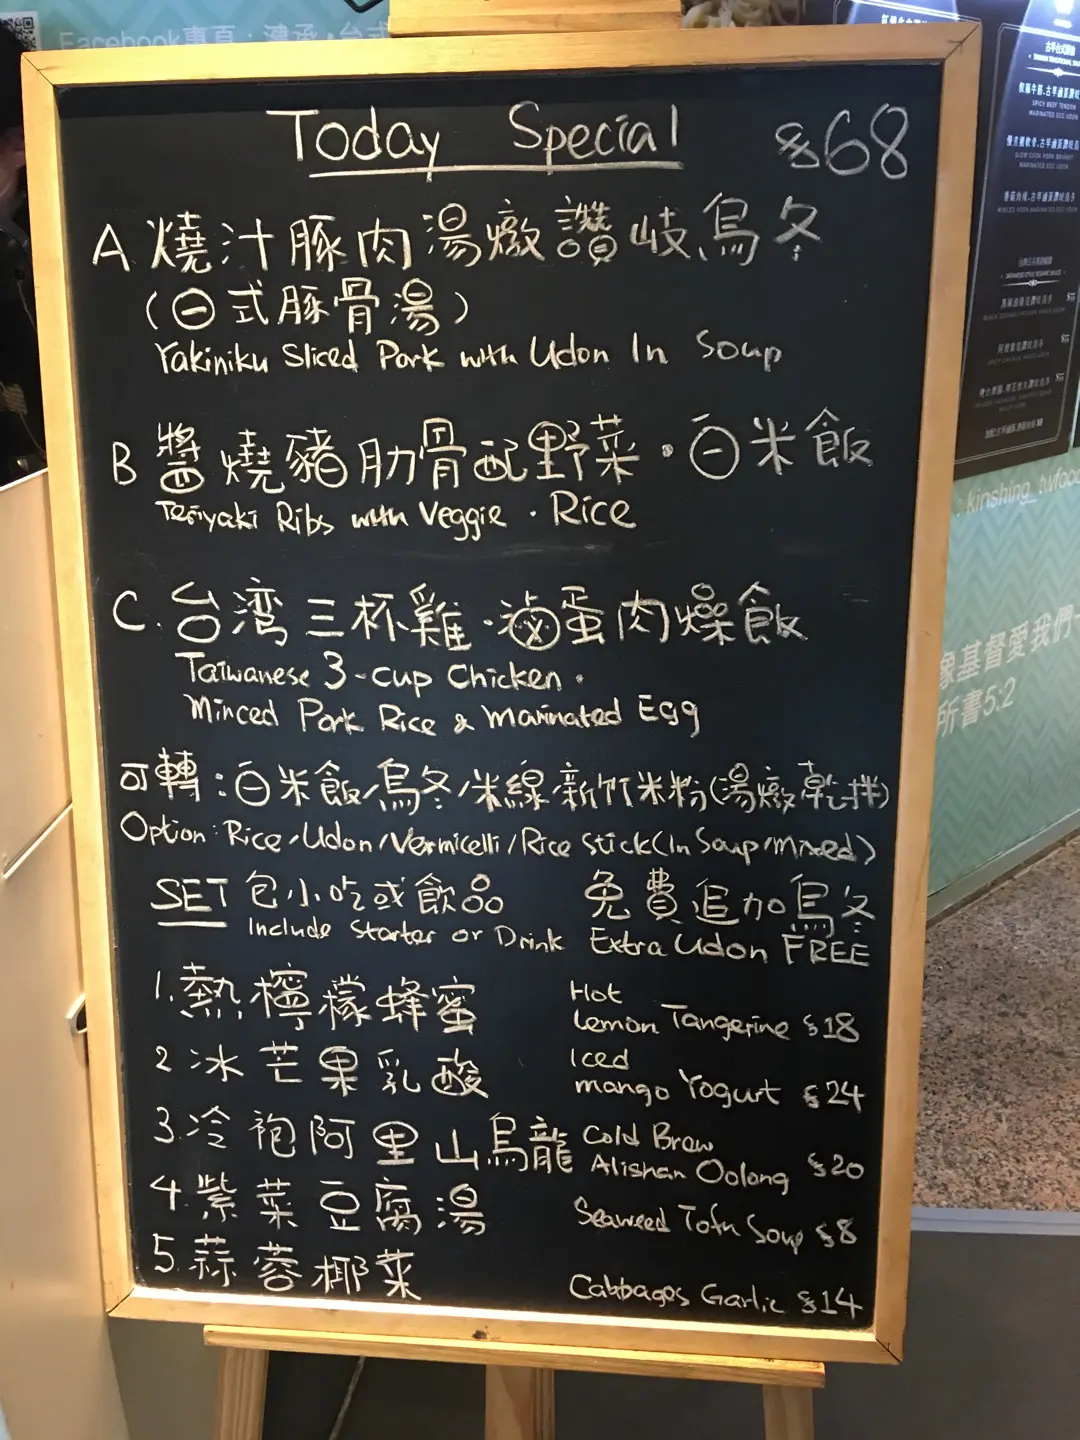 Facebook專頁：
Today Special $68
A 燒汁豚肉湯燉讚岐烏冬
(日式豚骨湯)
Yakiniku Sliced Pork with Udon In Soup
B 醬燒豬肋骨配野菜·白米飯
Teriyaki Ribs with Veggie · Rice
C. 台湾三杯雞·滷蛋肉燥飯
Taiwanese 3-cup Chicken ·
Minced Pork Rice & Marinated Egg
可轉：白米飯/烏冬/米線/新竹米粉(湯燉/乾拌)
Option: Rice/Udon/Vermicelli/Rice Stick(In Soup/Mixed)
SET 包小吃或飲品 免費追加烏冬
Include Starter or Drink Extra Udon FREE
1. 熱檸檬蜂蜜 Hot Lemon Tangerine $18
2 冰芒果乳酸 Iced Mango Yogurt $24
3. 冷袍阿里山烏龍 Cold Brew Alishan Oolong $20
4. 紫菜豆腐湯 Seaweed Tofu Soup $8
5. 蒜蓉椰菜 Cabbages Garlic $14
kinshing_twfood
像基督愛我們一
所書5:2